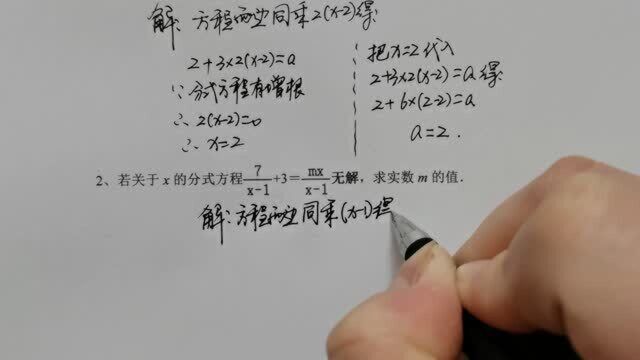 解：方程两边同乘2(x-2)得
2+3×2(x-2)=a
∵分式方程有增根
∴2(x-2)=0
∴x=2
把x=2代入
2+3×2(x-2)=a得
2+6×(2-2)=a
a=2.
2、若关于 x 的分式方程7/(x-1)+3=mx/(x-1)无解，求实数 m 的值．
解：方程两边同乘(x-1)得